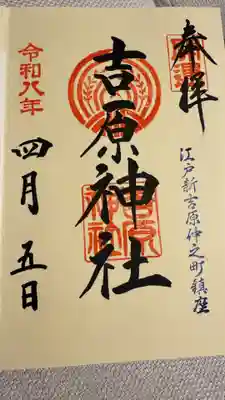 奉拝
江戸新吉原仲之町鎮座
吉原神社
吉原
神社
令和八年
四月五日